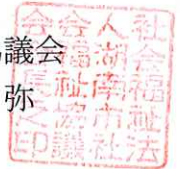 議会
弥
社会福祉法
人湖南市社
会福祉協議
会会長之印